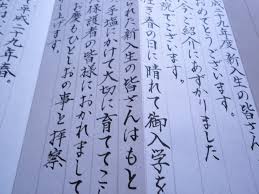 平成二十九年度新入生の皆さん
今ご紹介にあずかりました
説でございます。
春の日に晴れて御入学を
れた新入生の皆さんはもと
手塩にかけて大切に育ててこ
保護者の皆様におかれまして
お慶もひとしおの事と拝察
上げます。
平成二十九年春。